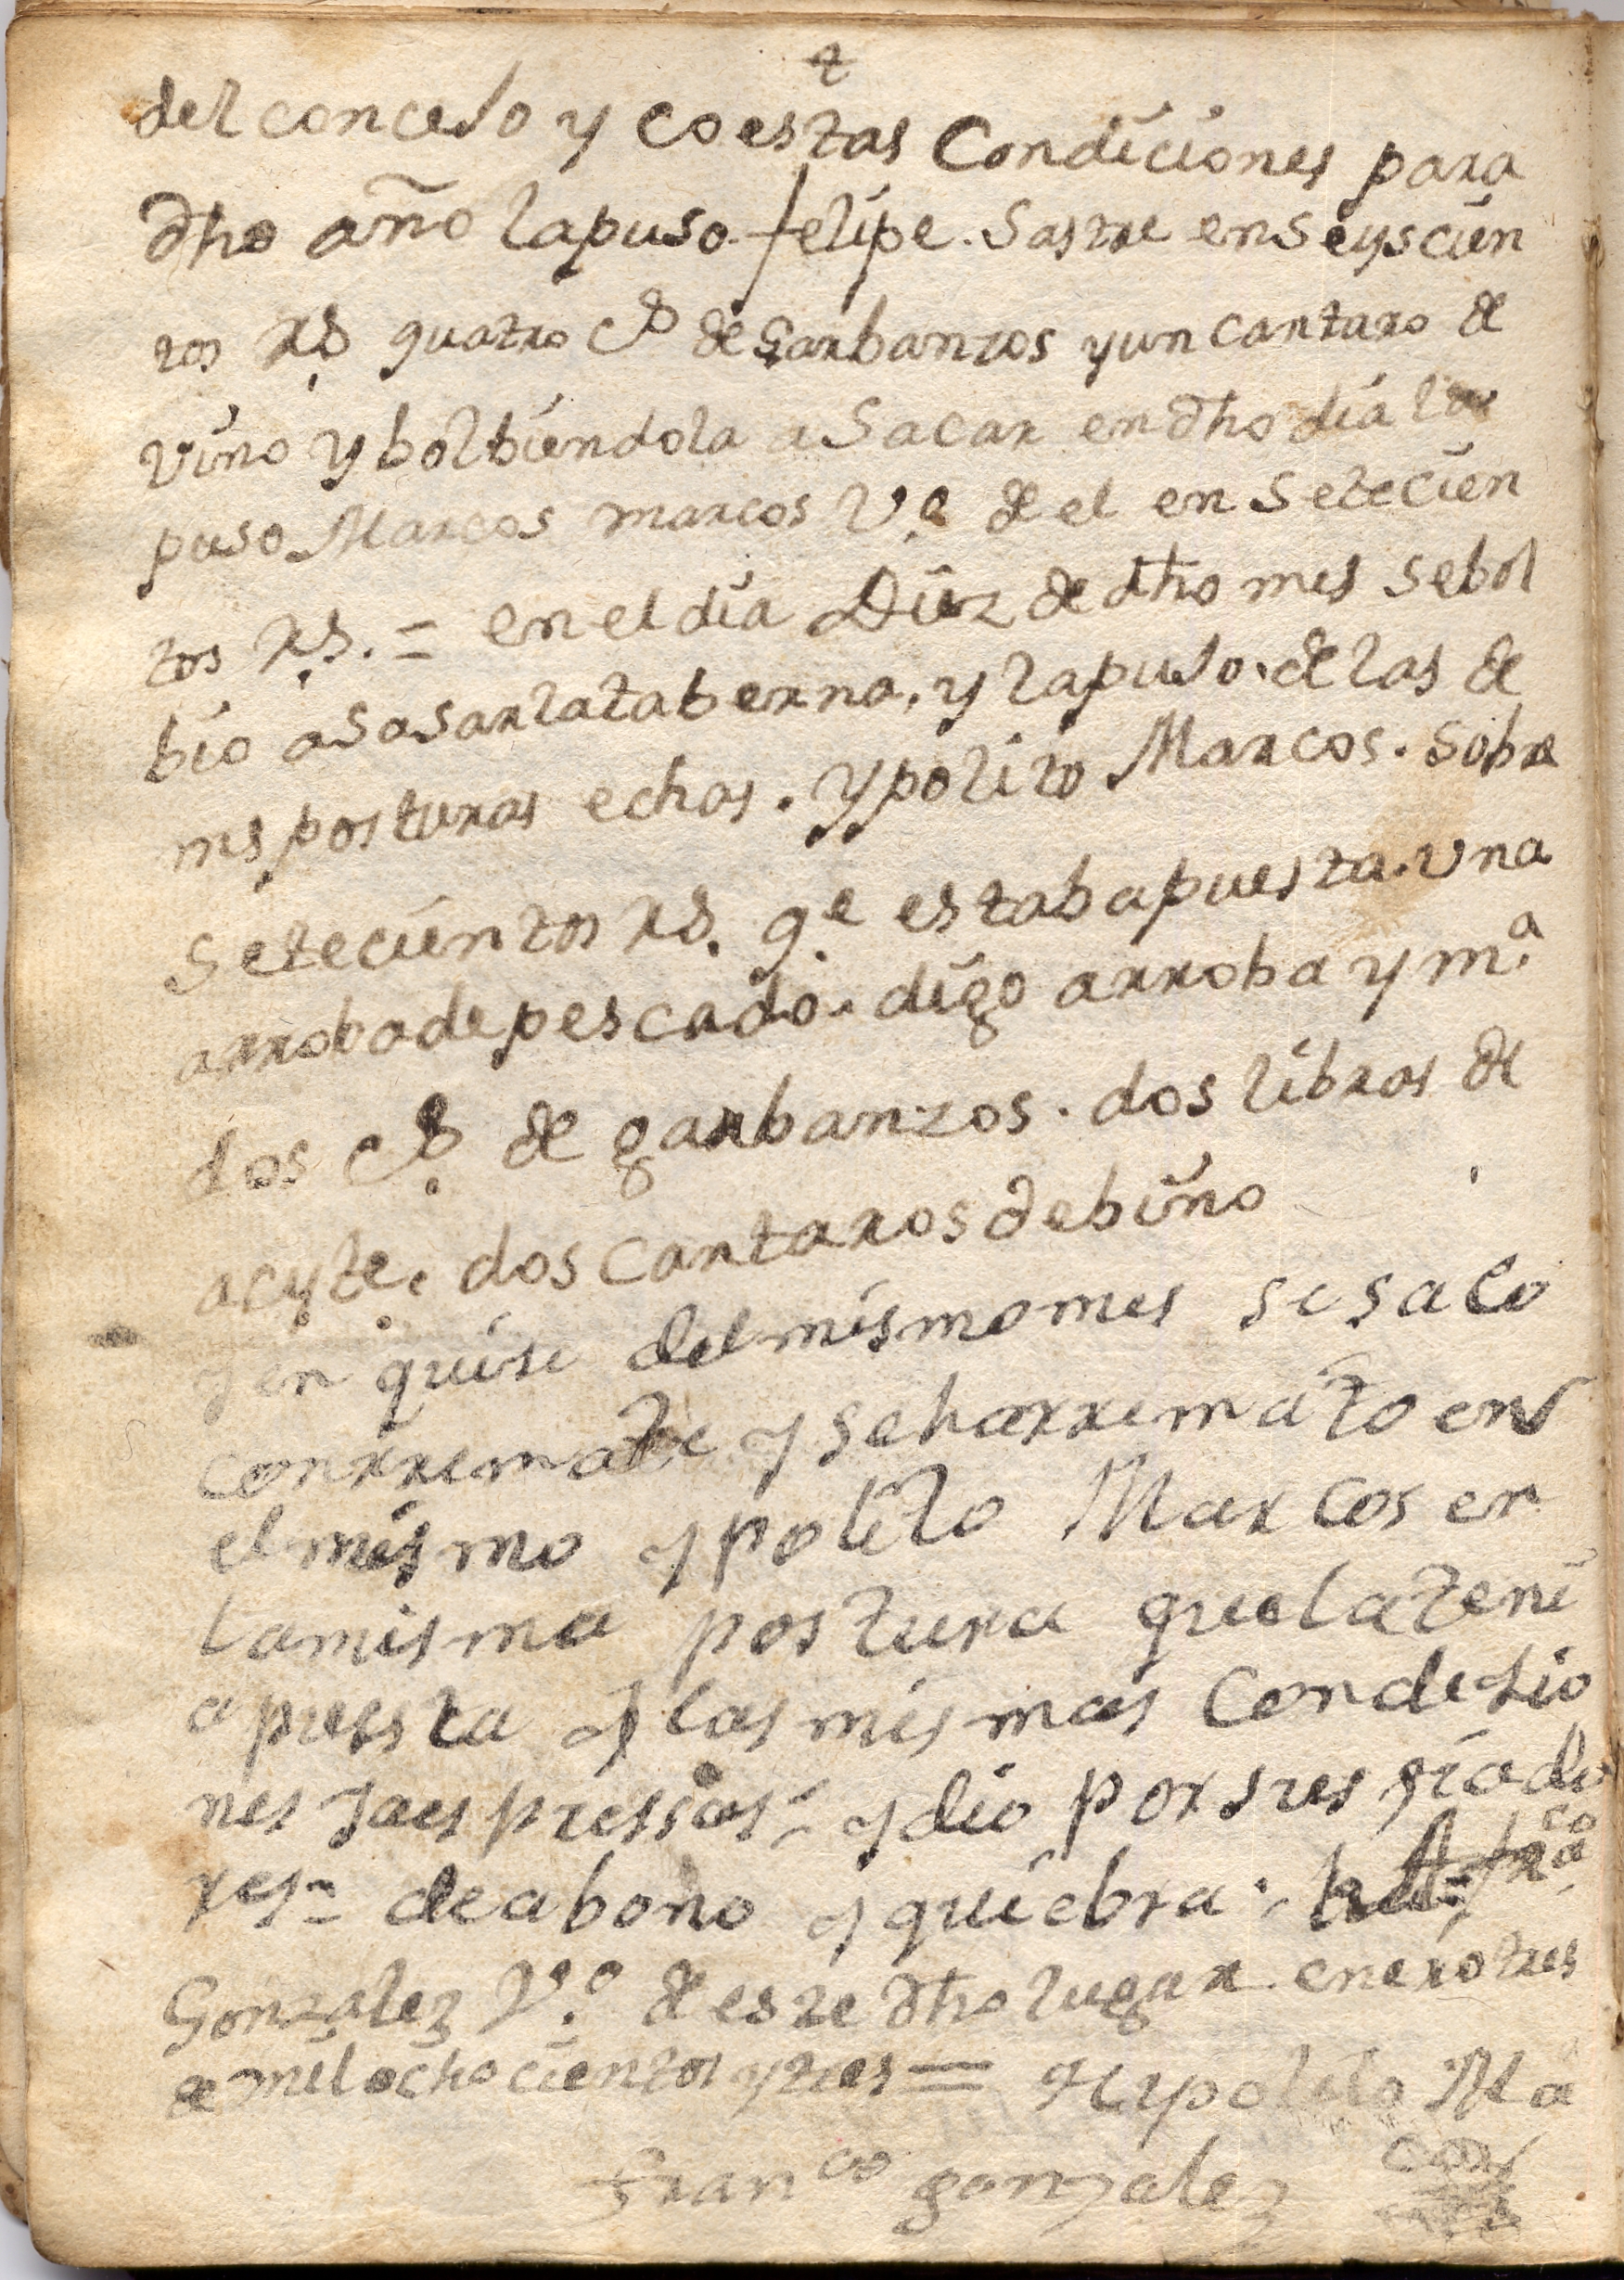 del concejo y co estas Condiciones para
dho año lapuso felipe. Sastre en Seyscien
tos Rs quatro Cs de Garbanzos y un cantaro de
vino y bolbiendola a Sacar en dho dia la
puso Marcos marcos Vº de el en Setecien
tos Rs. = en el dia Diez de dho mes se bol
bio a sasar la taberna. y la puso. de las de
ms posturas echas. Ypolito Marcos. Sobre
Setecientos Rs. qe estaba puesta. una
arroba de pescado. digo arroba y mª
dos Cs de garbanzos. dos libras de
acyte. dos cantaros de bino
y en quise del mismo mes se saco
conrremate y seharremato en
el mismo ypolito Marcos en
la misma postura que la teni
a puesta y las mismas Condisio
nes ya espressas = y dio por sus fiado
res = de abono y quiebra. franco
Gonzalez Vº de este dho lugar. enero tres
de mil ochocientos y tres = Hypolito Ma
cos
franco gonzalez